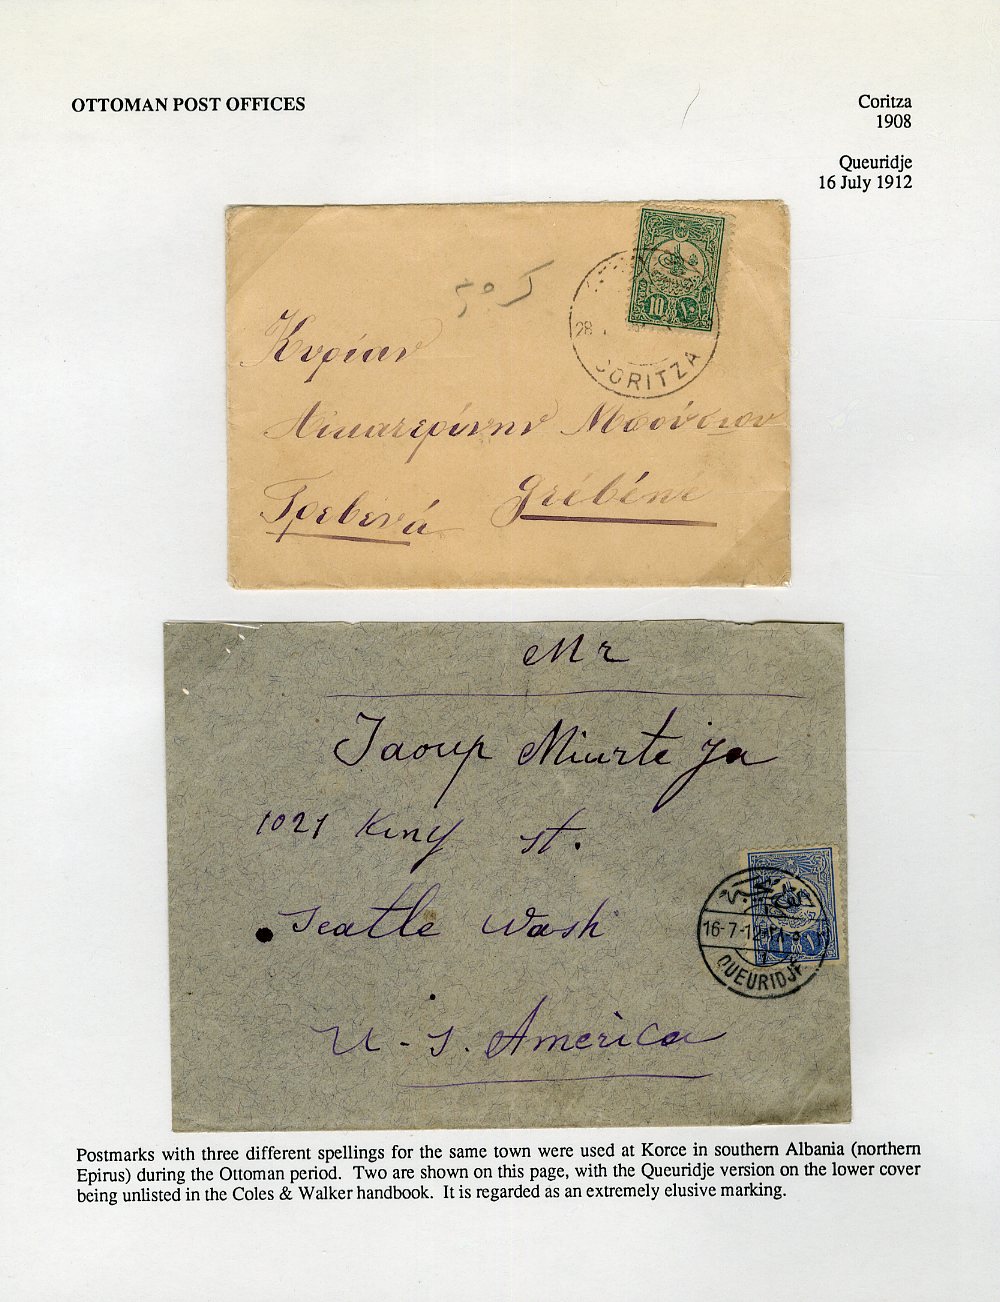 OTTOMAN POST OFFICES
Coritza
1908
Queuridje
16 July 1912
10
28
CORITZA
Κυρίαν
Αικατερίνην Μπούσιου
Γρεβενά Grébéné
Mr
Jaoup Miurte ja
1021 King st.
Seatle Wash
U.S. America
16-7-12
QUEURIDJE
Postmarks with three different spellings for the same town were used at Korce in southern Albania (northern
Epirus) during the Ottoman period. Two are shown on this page, with the Queuridje version on the lower cover
being unlisted in the Coles & Walker handbook. It is regarded as an extremely elusive marking.